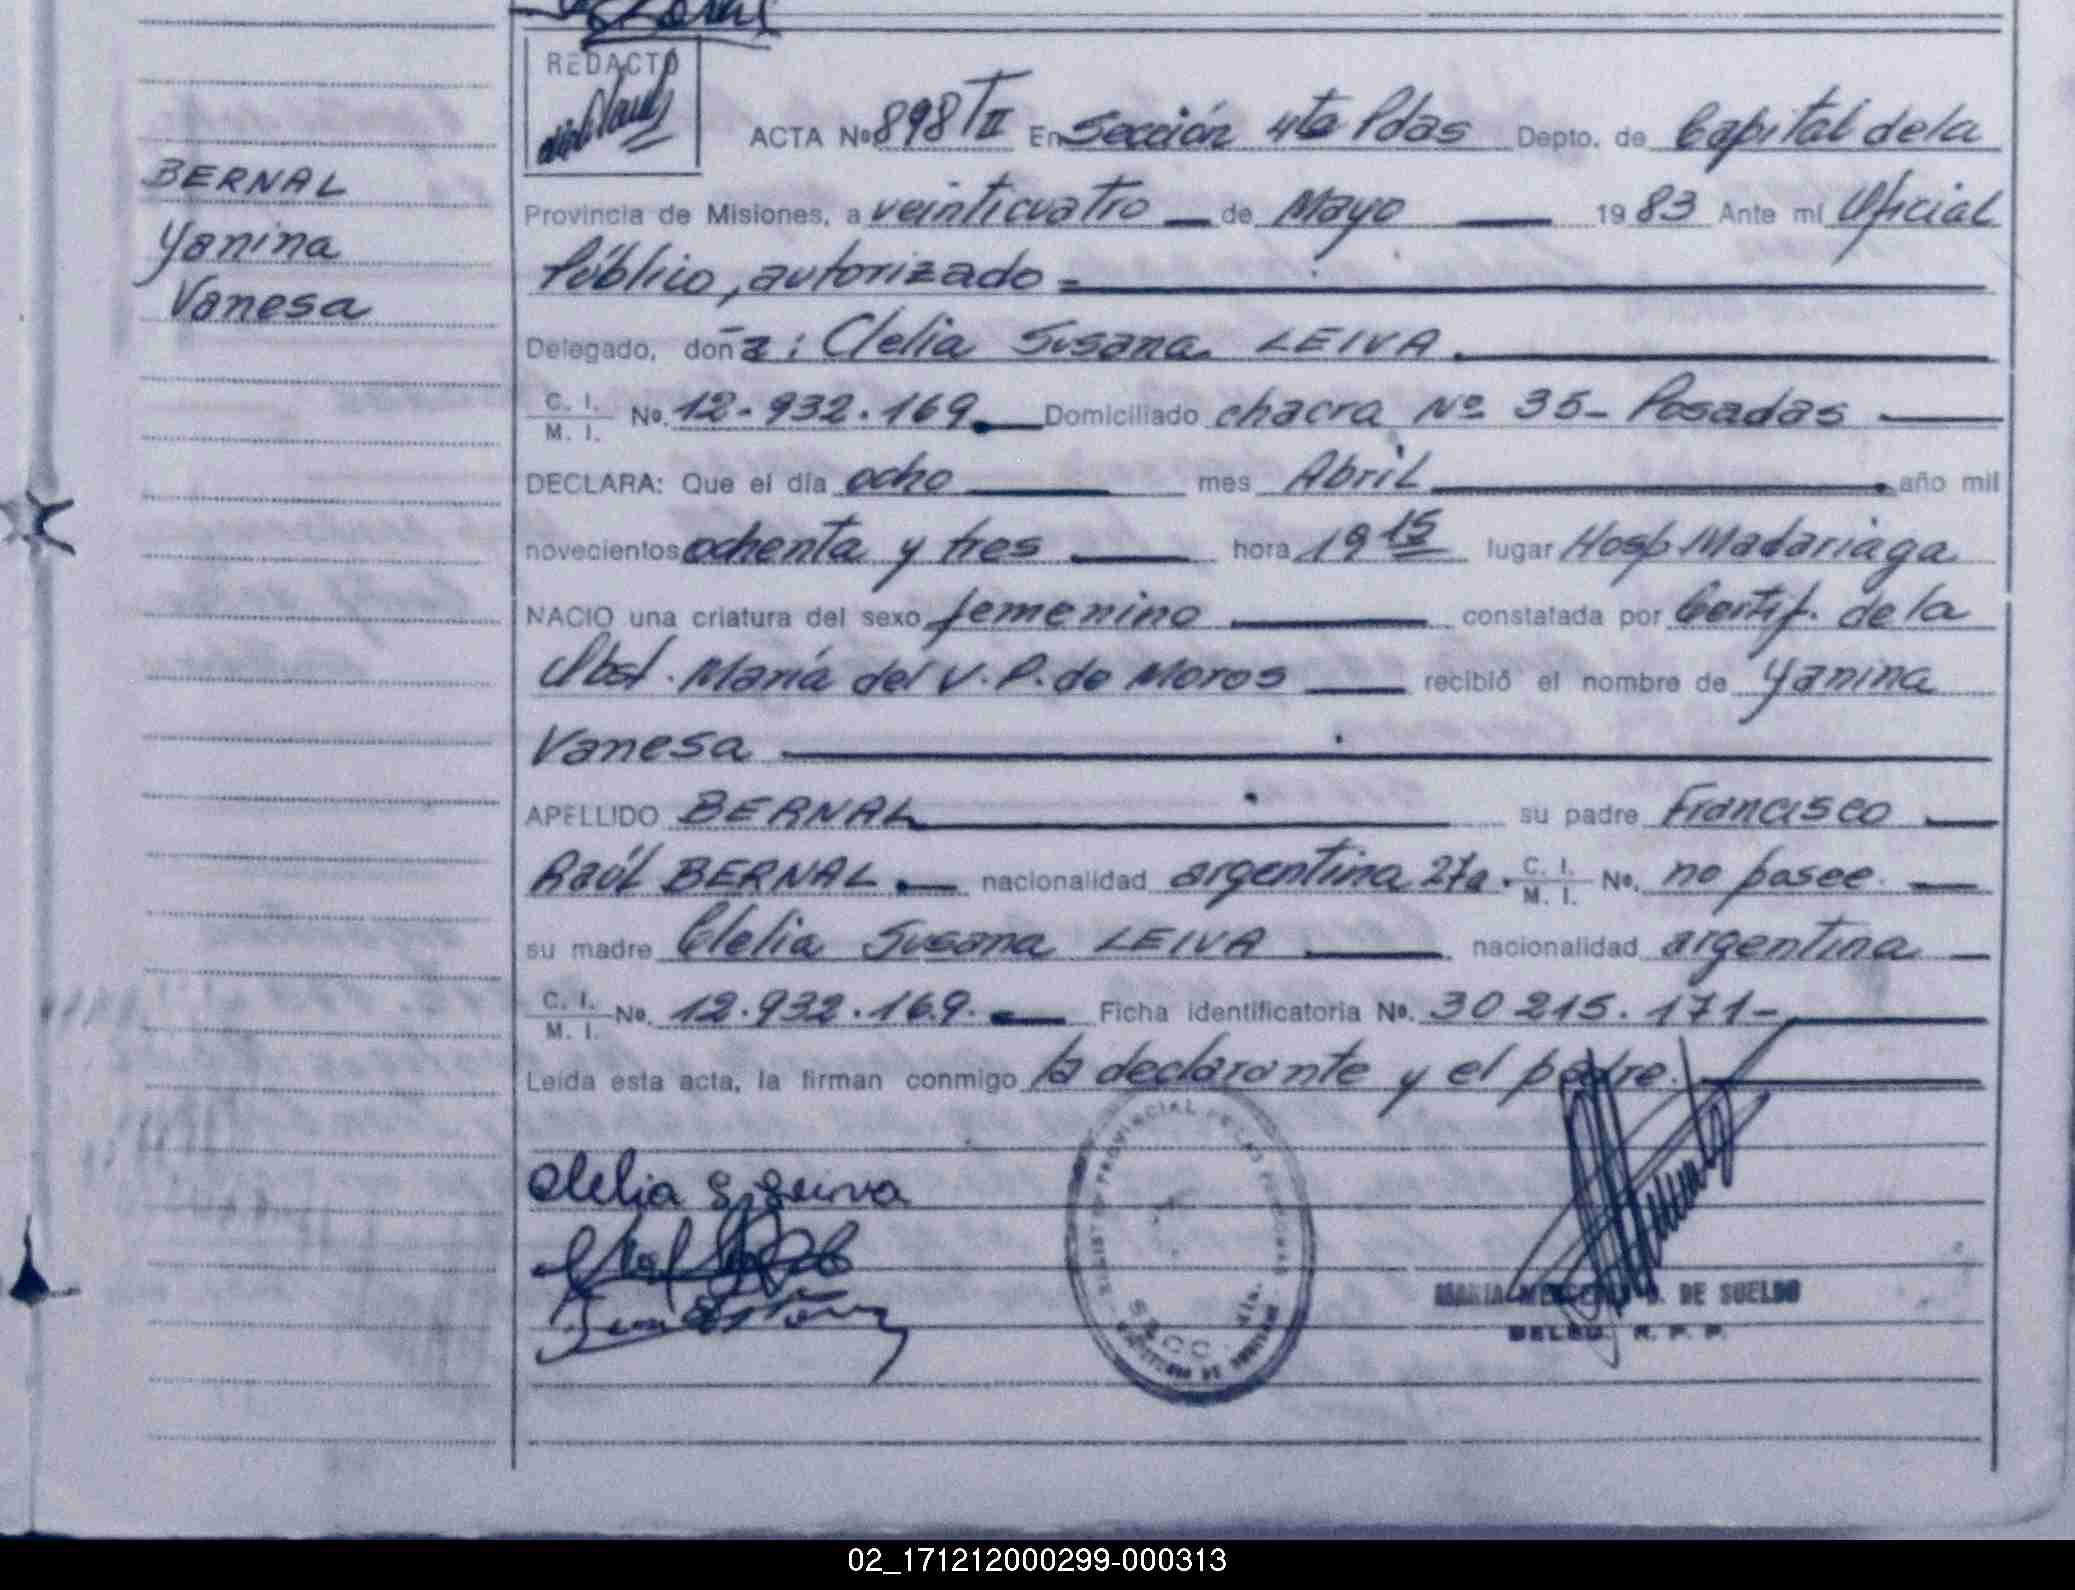 REDACTO
ACTA Nº 898 T II En Sección 4ta Pdas Depto. de Capital de la
BERNAL
Yanina
Vanesa
Provincia de Misiones, a veinticuatro de Mayo 1983 Ante mí Oficial
Público, autorizado =
Delegado, doña: Clelia Susana LEIVA
C. I. / M. I. No. 12.932.169. Domiciliado chacra Nº 35- Posadas
DECLARA: Que el día ocho mes Abril año mil
novecientos ochenta y tres hora 19 15 lugar Hosp Madariaga
NACIO una criatura del sexo femenino constatada por Certif. de la
Obst. María del V. P. de Moros recibió el nombre de Yanina
Vanesa
APELLIDO BERNAL su padre Francisco
Raúl BERNAL. nacionalidad argentina 27a. C. I. / M. I. No. no posee.
su madre Clelia Susana LEIVA nacionalidad argentina
C. I. / M. I. No. 12.932.169. Ficha identificatoria No. 30 215.171-
Leída esta acta, la firman conmigo la declarante y el padre.
Clelia S. Leiva
REGISTRO PROVINCIAL DE LAS PERSONAS
SECC. 4ta.
PROVINCIA DE MISIONES
DE SUELDO
DELEG. R. P. P.
02_171212000299-000313